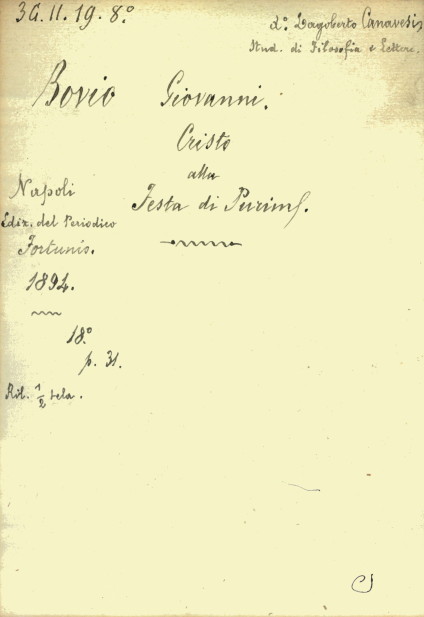 3G.11.19.8.°
d.° Dagoberto Canavesi,
Stud. di Filosofia e Lettere.
Bovio Giovanni.
Cristo
alla
Festa di Purim.
Napoli
Ediz. del Periodico
Fortunio.
1894.
18.°
p. 31.
Ril. 1/2 tela.